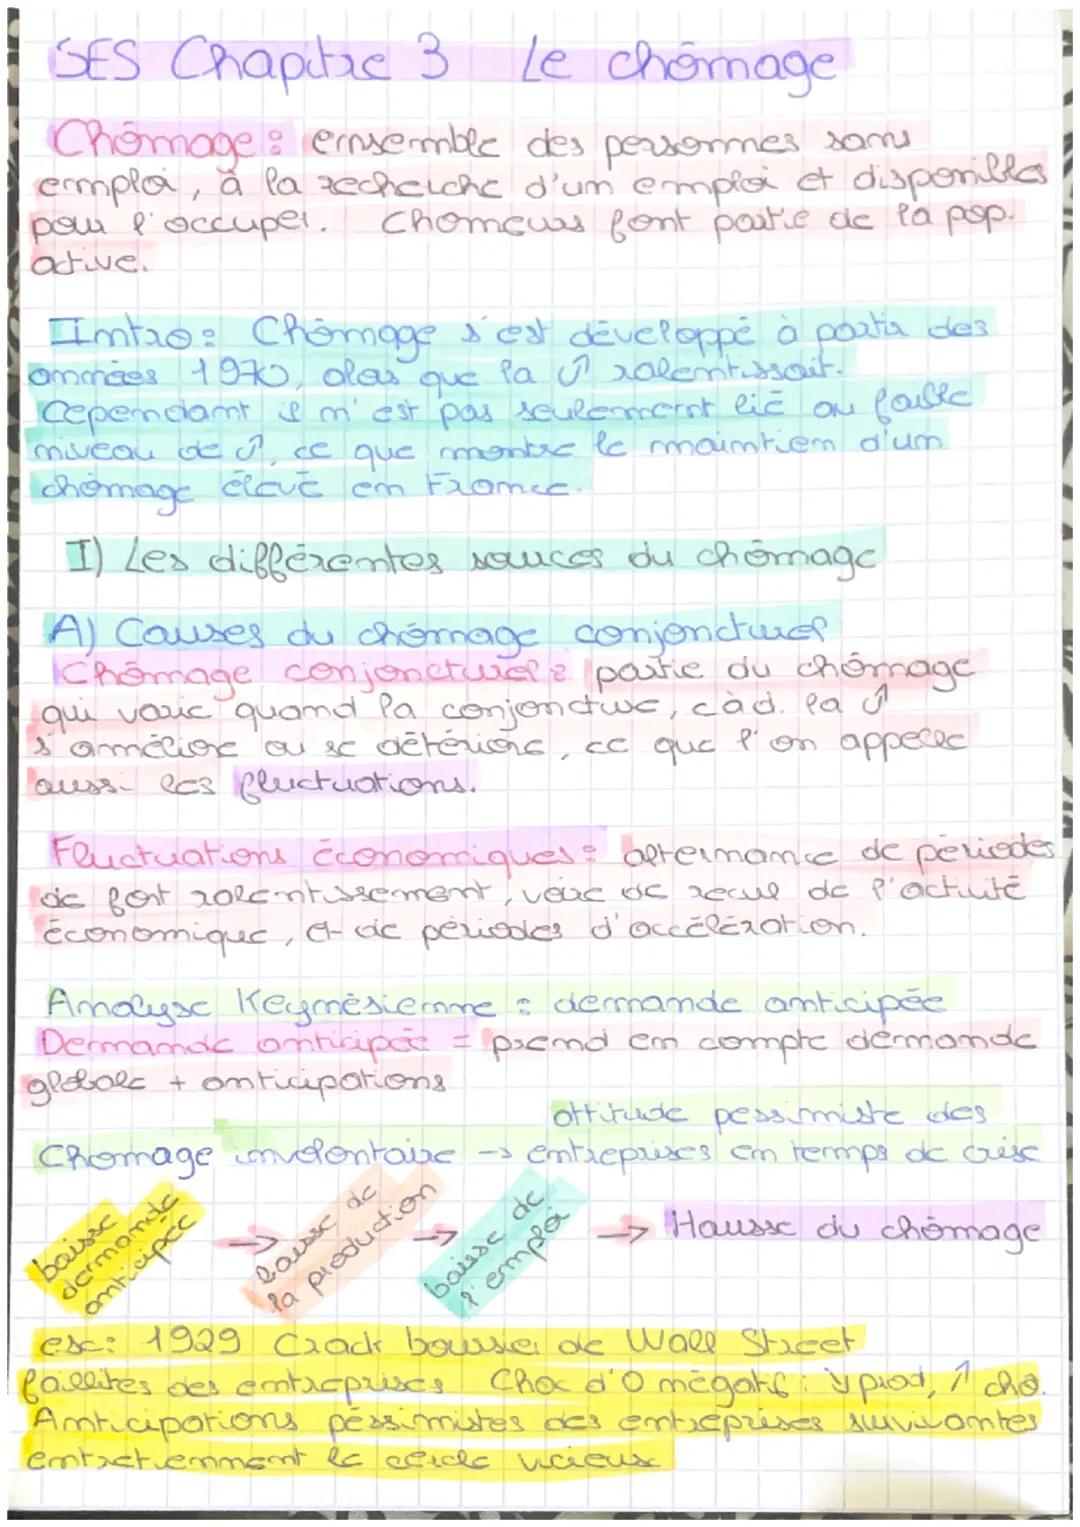 SES Chapitre 3 Le chômage
Chômage : ensemble des personnes sans
emploi, à la recherche d'un emploi et disponibles
pour l'occuper. Chomeurs font partie de la pop.
active.
Intro : Chômage s'est développé à partir des
années 1970, alors que la ↗ ralentissait.
Cependant il n'est pas seulement lié au faible
niveau de ↗, ce que montre le maintien d'un
chômage élevé en France.
I) Les différentes sources du chômage
A) Causes du chômage conjoncturel
Chômage conjoncturel : partie du chômage
qui varie quand la conjoncture, càd. la ↗
s'améliore ou se détériore, ce que l'on appelle
aussi les fluctuations.
Fluctuations économiques : alternance de périodes
de fort ralentissement, voire de recul de l'activité
économique, et de périodes d'accélération.
Analyse Keynésienne : demande anticipée
Demande anticipée = prend en compte demande
globale + anticipations
attitude pessimiste des
Chomage involontaire → entreprises en temps de crise
baisse demande anticipée → baisse de la production → baisse de l'emploi → Hausse du chômage
ex : 1929 Crack boursier de Wall Street
faillites des entreprises Choc d'O négatif : ↘ prod, ↗ cho.
Anticipations pessimistes des entreprises survivantes
entretiennent le cercle vicieux